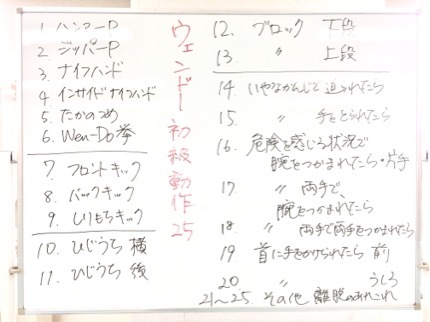 1. ハンマーP
2. ジッパーP
3. ナイフハンド
4. インサイドナイフハンド
5. たかのつめ
6. Wen-Do拳
7. フロントキック
8. バックキック
9. しりもちキック
10. ひじうち 横
11. ひじうち 後
ウェンドー初級動作25
12. ブロック 下段
13. 〃 上段
14. いやなかんじで 迫られたら
15. 〃 手をとられたら
16. 危険を感じる状況で
腕をつかまれたら・片手
17. 〃 両手で、
腕をつかまれたら
18 〃 両手で両手をつかまれたら
19 首に手をかけられたら 前
20 〃 うしろ
21~25 その他 離脱のあれこれ